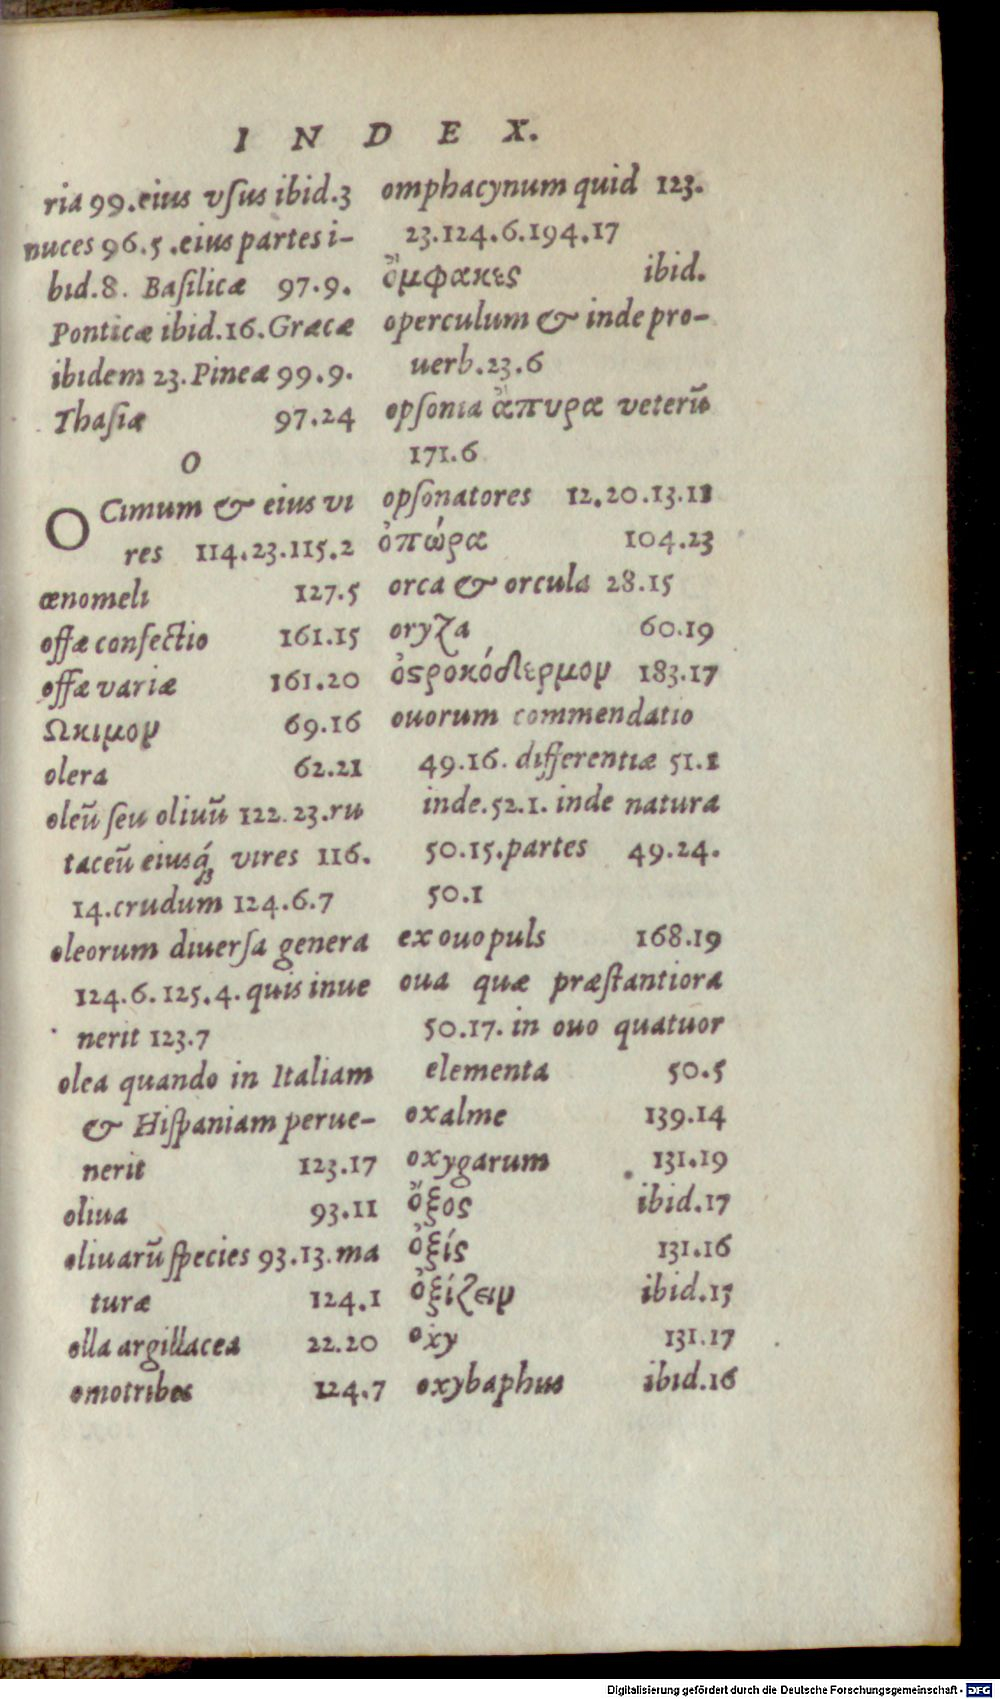 INDEX.
ria 99.eius vſus ibid.3
nuces 96.5.eius partes i-
bid.8. Baſilicæ 97.9.
Ponticæ ibid.16.Græcæ
ibidem 23.Pineæ 99.9.
Thaſiæ 97.24
O
OCimum & eius vi
res 114.23.115.2
œnomeli 127.5
offæ confectio 161.15
offæ variæ 161.20
Ωκιμον 69.16
olera 62.21
oleū ſeu oliuū 122.23.ru
taceū eiusq́; vires 116.
14.crudum 124.6.7
oleorum diuerſa genera
124.6.125.4.quis inue
nerit 123.7
olea quando in Italiam
& Hiſpaniam perue-
nerit 123.17
oliua 93.11
oliuarū ſpecies 93.13.ma
turæ 124.1
olla argillacea 22.20
omotribes 124.7
omphacynum quid 123.
23.124.6.194.17
ὄμφακες ibid.
operculum & inde pro-
uerb.23.6
opſonia ἄπυρα veterū
171.6
opſonatores 12.20.13.11
ὀπώρα 104.23
orca & orcula 28.15
oryza 60.19
ὀςρακόδερμον 183.17
ouorum commendatio
49.16. differentiæ 51.1
inde.52.1. inde natura
50.15.partes 49.24.
50.1
ex ouo puls 168.19
oua quæ præſtantiora
50.17. in ouo quatuor
elementa 50.5
oxalme 139.14
oxygarum 131.19
ὄξος ibid.17
ὀξίς 131.16
ὀξίζειν ibid.13
oxy 131.17
oxybaphus ibid.16
Digitalisierung gefördert durch die Deutsche Forschungsgemeinschaft - DFG